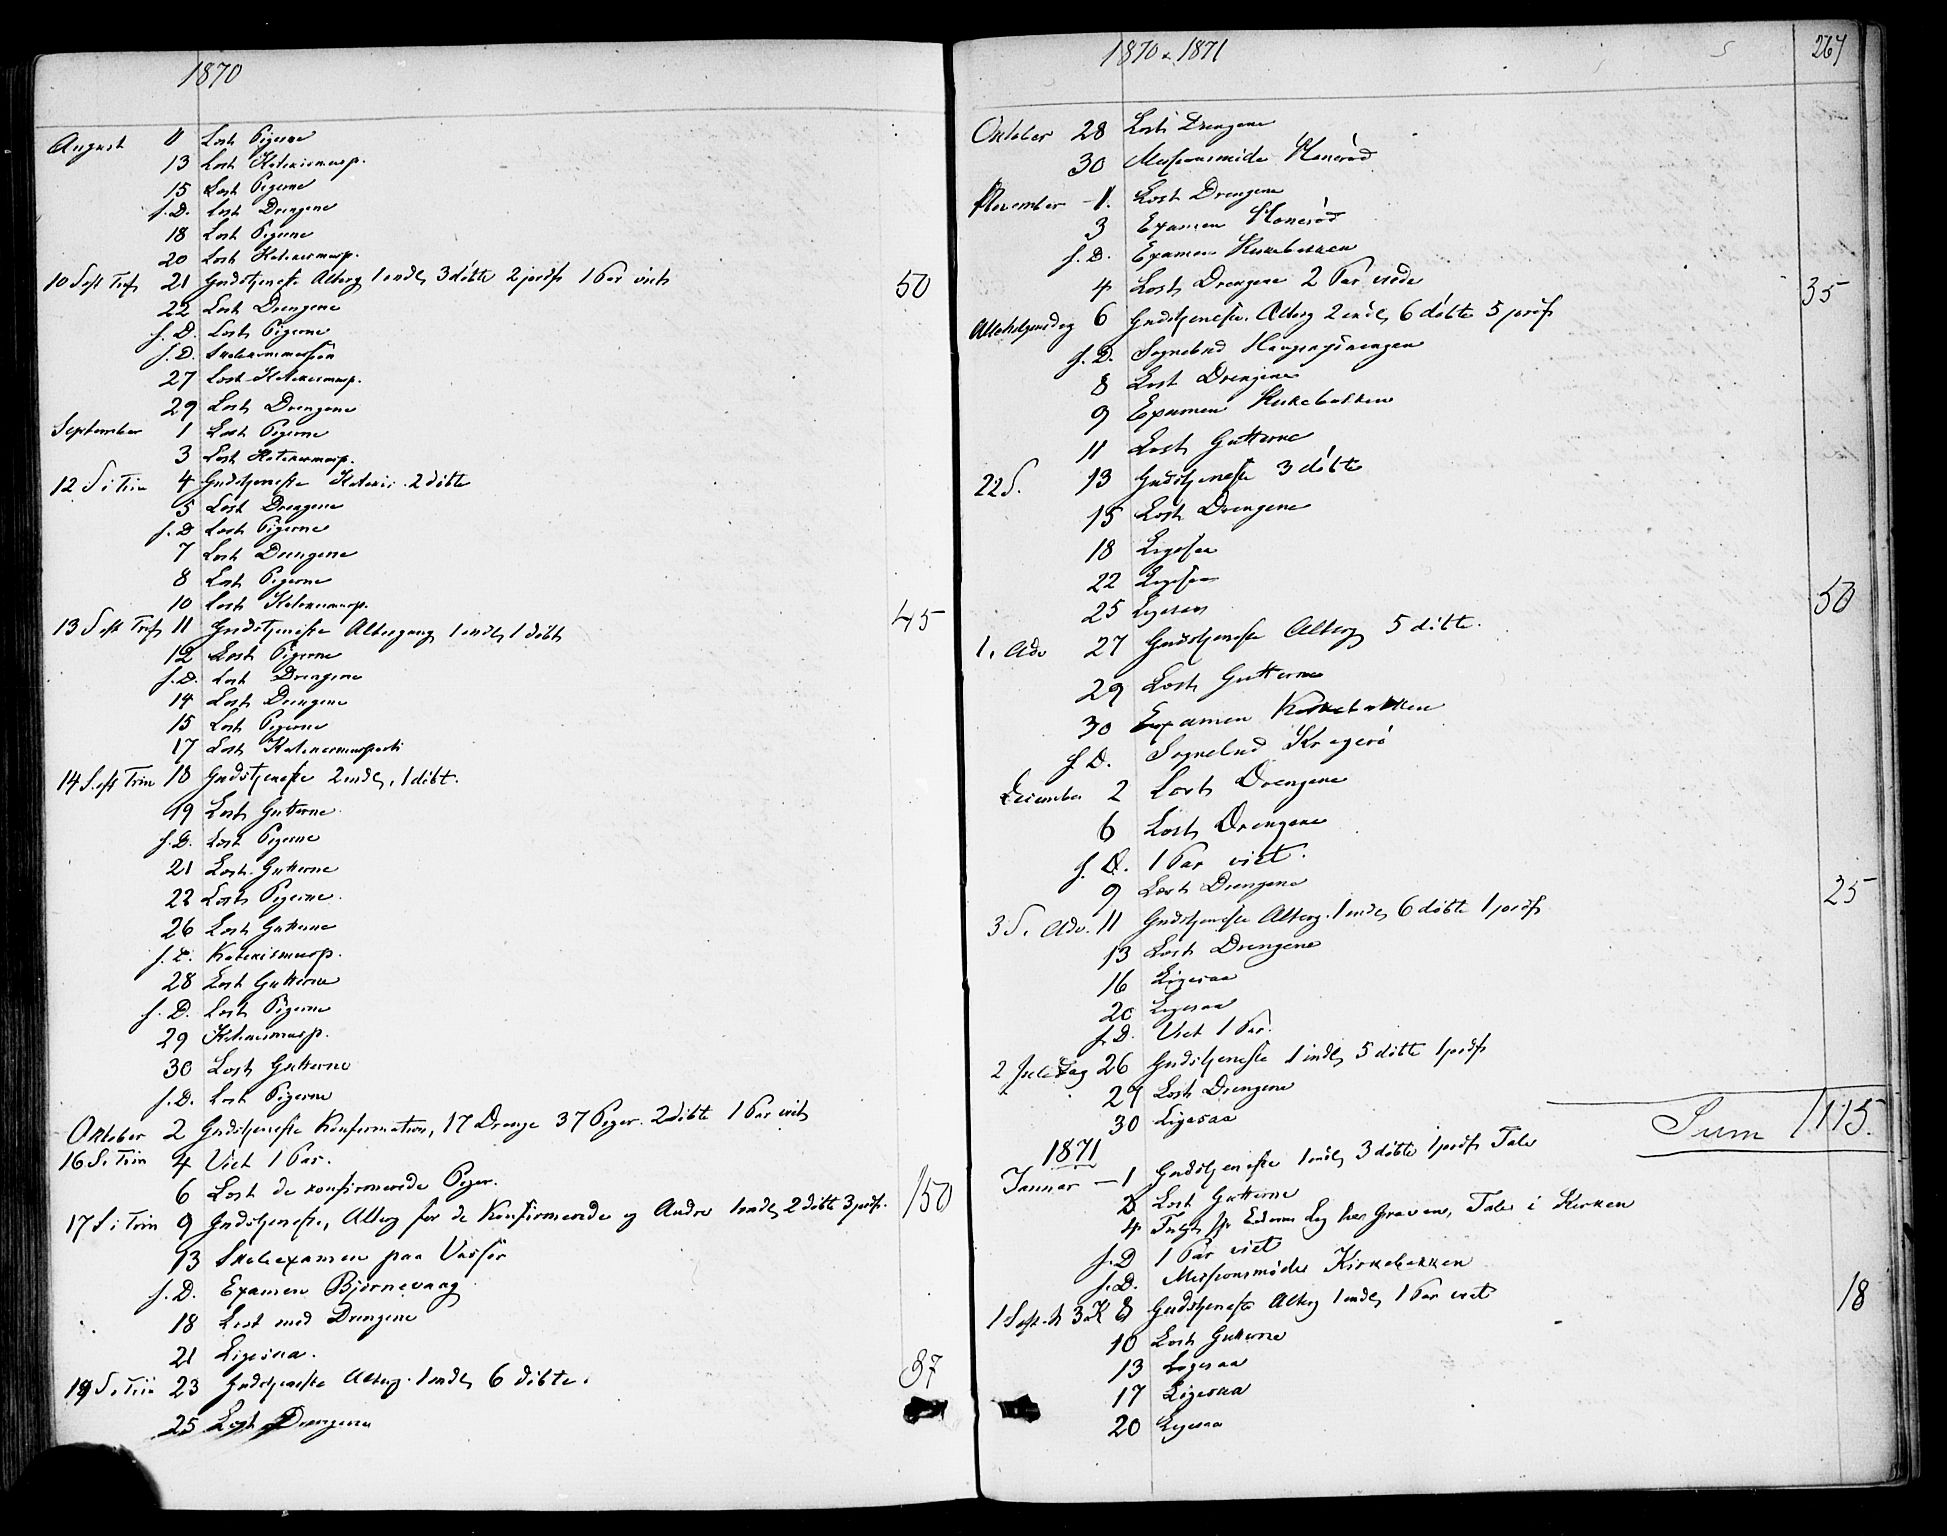 1870
August 11 Læst Pigerne
13 Læst Katekismusp.
15 Læst Pigerne
s.D. Læst Drengene
18 Læst Pigerne
20 Læst Katekismusp.
10 S eft Trf 21 Gudstjeneste Alterg 1 indl, 3 döbte 2 jordf 1 Par viet 50
22 Læst Drengene
s.D. Læst Pigerne
s.D. Skolekommission
27 Læst Katekismusp.
29 Læst Drengene
September 1 Læst Pigerne
3 Læst Katekismusp.
12 S i Trin 4 Gudstjeneste Katekis. 2 döbte
5 Læst Drengene
s.D Læst Pigerne
7 Læst Drengene
8 Læst Pigerne
10 Læst Katekismusp.
13 S eft Trf 11 Gudstjeneste Altergang 1 indl, 1 döbt 45
12 Læst Pigerne
s.D. Læst Drengene
14 Læst Drengene
15 Læst Pigerne
17 Læst Katekismuspecti
14 S. eft Trin 18 Gudstjeneste 2 indl, 1 döbt.
19 Læst Gutterne
s.D. Læst Pigerne
21 Læst Gutterne
22 Læst Pigerne.
26 Læst Gutterne
s.D. Katekismusp.
28 Læst Gutterne
s.D. Læst Pigerne
29 Katekismusp.
30 Læst Gutterne
s.D. Læst Pigerne
Oktober 2 Gudstjeneste Konfirmation, 17 Drenge 37 Piger. 2 döbte 1 Par viet
16 S. Trin 4 Viet 1 Par.
6 Læst de konfirmerede Piger.
17 S i Trin 9 Gudstjeneste, Alterg for de Konfirmerede og Andre 1 indl, 2 döbte 3 jordf. 150
13 Skoleexamen paa Vasför
s.D. Examen Björnevaag
18 Læst med Drengene
21 Ligesaa.
19 S. Trin 23 Gudstjeneste Alterg. 1 indl, 6 döbte. 87
25 Læst Drengene
1870 & 1871 267
Oktober 28 Læst Drengene
30 Missionsmöde
November 1. Læst Drengene
3 Examen
s.D. Examen Kirkebakken
4 Læst Drengene 2 Par viede 35
Allehelgensdag 6 Gudstjeneste. Alterg 2 indl, 6 döbte 5 jordf
s.D. Sognebud
8 Læst Drengene
9 Examen Kirkebakken
11 Læst Gutterne
22 S. 13 Gudstjeneste 3 döbte
15 Læst Drengene
18 Ligesaa
22 Ligesaa
25 Ligesaa 50
1. Adv 27 Gudstjeneste Alterg 5 döbte.
29 Læst Gutterne
30 Examen Kirkebakken
s.D. Sognebud Kragerö
December 2 Læst Drengene
6 Læst Drengene
s.D. 1 Par viet.
9 Læst Drengene 25
3 S. Adv. 11 Gudstjeneste Alterg. 1 indl, 6 döbte 1 jordf
13 Læst Drengene
16 Ligesaa
20 Ligesaa
s.D. Viet 1 Par.
2 Juledag 26 Gudstjeneste 1 indl, 5 döbte 1 jordf
27 Læst Drengene
30 Ligesaa
Sum 1115.
1871
Januar 1 Gudstjeneste 1 indl, 3 döbte 1 jordf Tale
3 Læst Gutterne
4 Graven, Tale i Kirken
s.D 1 Par viet
s.D. Missionsmöde Kirkebakken
1 S eft. H 3 K 8 Gudstjeneste Alterg 1 indl, 1 Par viet 18
10 Læst Gutterne
13 Ligesaa
17 Ligesaa
20 Ligesaa